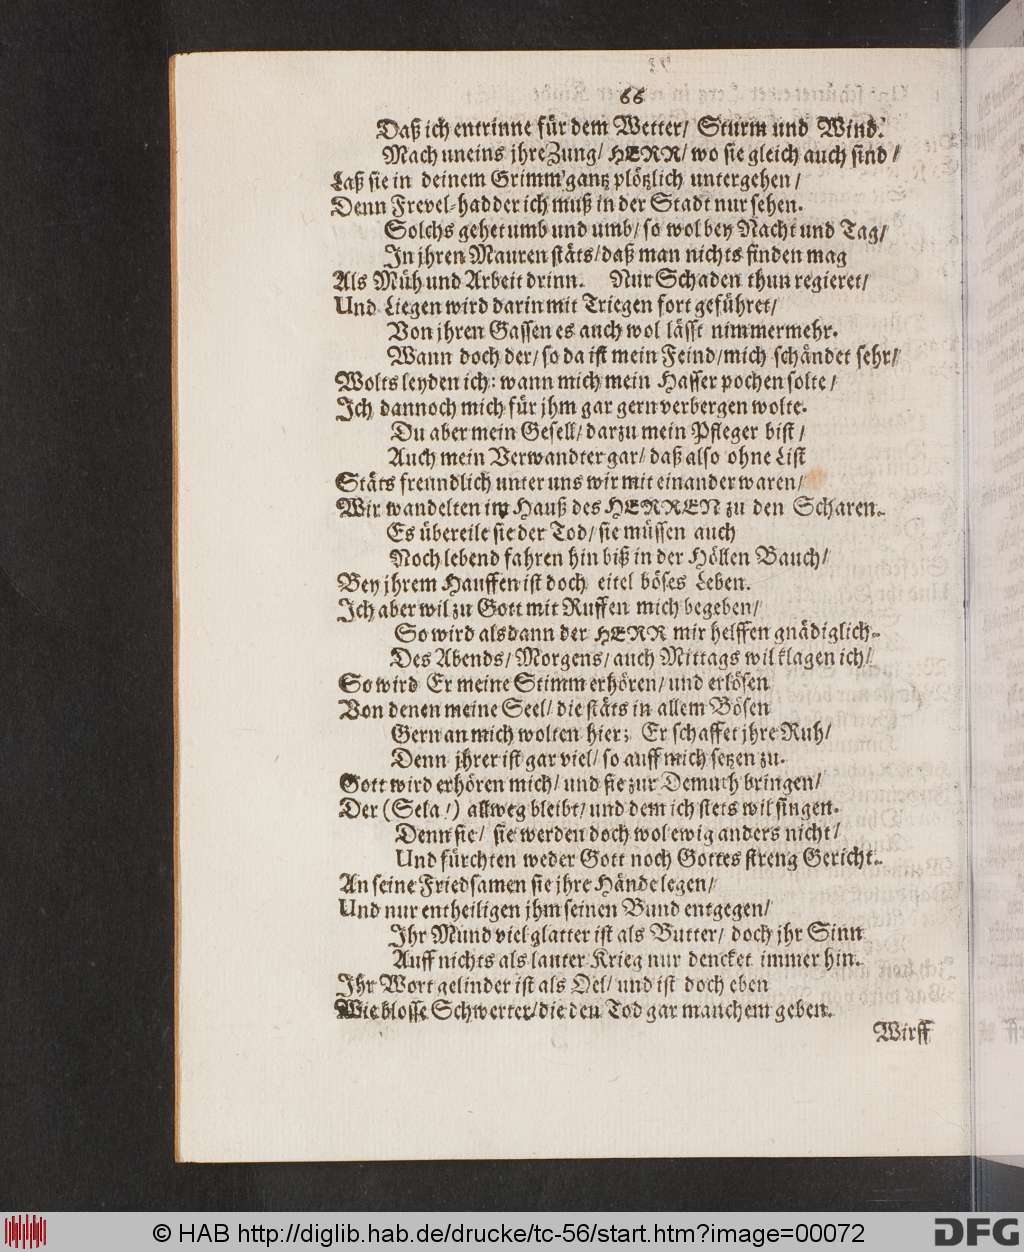 66
Daß ich entrinne für dem Wetter/ Sturm und Wind.
Mach uneins jhre Zung/ HERR/ wo sie gleich auch sind/
Laß sie in deinem Grimm gantz plötzlich untergehen/
Denn Frevel-hadder ich muß in der Stadt nur sehen.
Solchs gehet umb und umb/ so wol bey Nacht und Tag/
In jhren Mauren stäts/ daß man nichts finden mag
Als Müh und Arbeit drinn. Nur Schaden thun regieret/
Und Liegen wird darin mit Triegen fort geführet/
Von jhren Gassen es auch wol lässt nimmermehr.
Wann doch der/ so da ist mein Feind/ mich schändet sehr/
Wolts leyden ich: wann mich mein Hasser pochen solte/
Ich dannoch mich für jhm gar gern verbergen wolte.
Du aber mein Gesell/ darzu mein Pfleger bist/
Auch mein Verwandter gar/ daß also ohne List
Stäts freundlich unter uns wir mit einander waren/
Wir wandelten im Hauß des HERREN zu den Scharen.
Es übereile sie der Tod/ sie müssen auch
Noch lebend fahren hin biß in der Höllen Bauch/
Bey jhrem Hauffen ist doch eitel böses Leben.
Ich aber wil zu Gott mit Ruffen mich begeben/
So wird alsdann der HERR mir helffen gnädiglich.
Des Abends/ Morgens/ auch Mittags wil klagen ich/
So wird Er meine Stimm erhören/ und erlösen
Von denen meine Seel/ die stäts in allem Bösen
Gern an mich wolten hier; Er schaffet jhre Ruh/
Denn jhrer ist gar viel/ so auff mich setzen zu.
Gott wird erhören mich/ und sie zur Demuth bringen/
Der (Sela!) allweg bleibt/ und dem ich stets wil singen.
Denn sie/ sie werden doch wol ewig anders nicht/
Und fürchten weder Gott noch Gottes streng Gericht.
An seine Friedsamen sie jhre Hände legen/
Und nur entheiligen jhm seinen Bund entgegen/
Ihr Mund viel glatter ist als Butter/ doch jhr Sinn
Auff nichts als lauter Krieg nur dencket immer hin.
Ihr Wort gelinder ist als Oel/ und ist doch eben
Wie blosse Schwerter/ die den Tod gar manchem geben.
Wirff
© HAB http://diglib.hab.de/drucke/tc-56/start.htm?image=00072
DFG